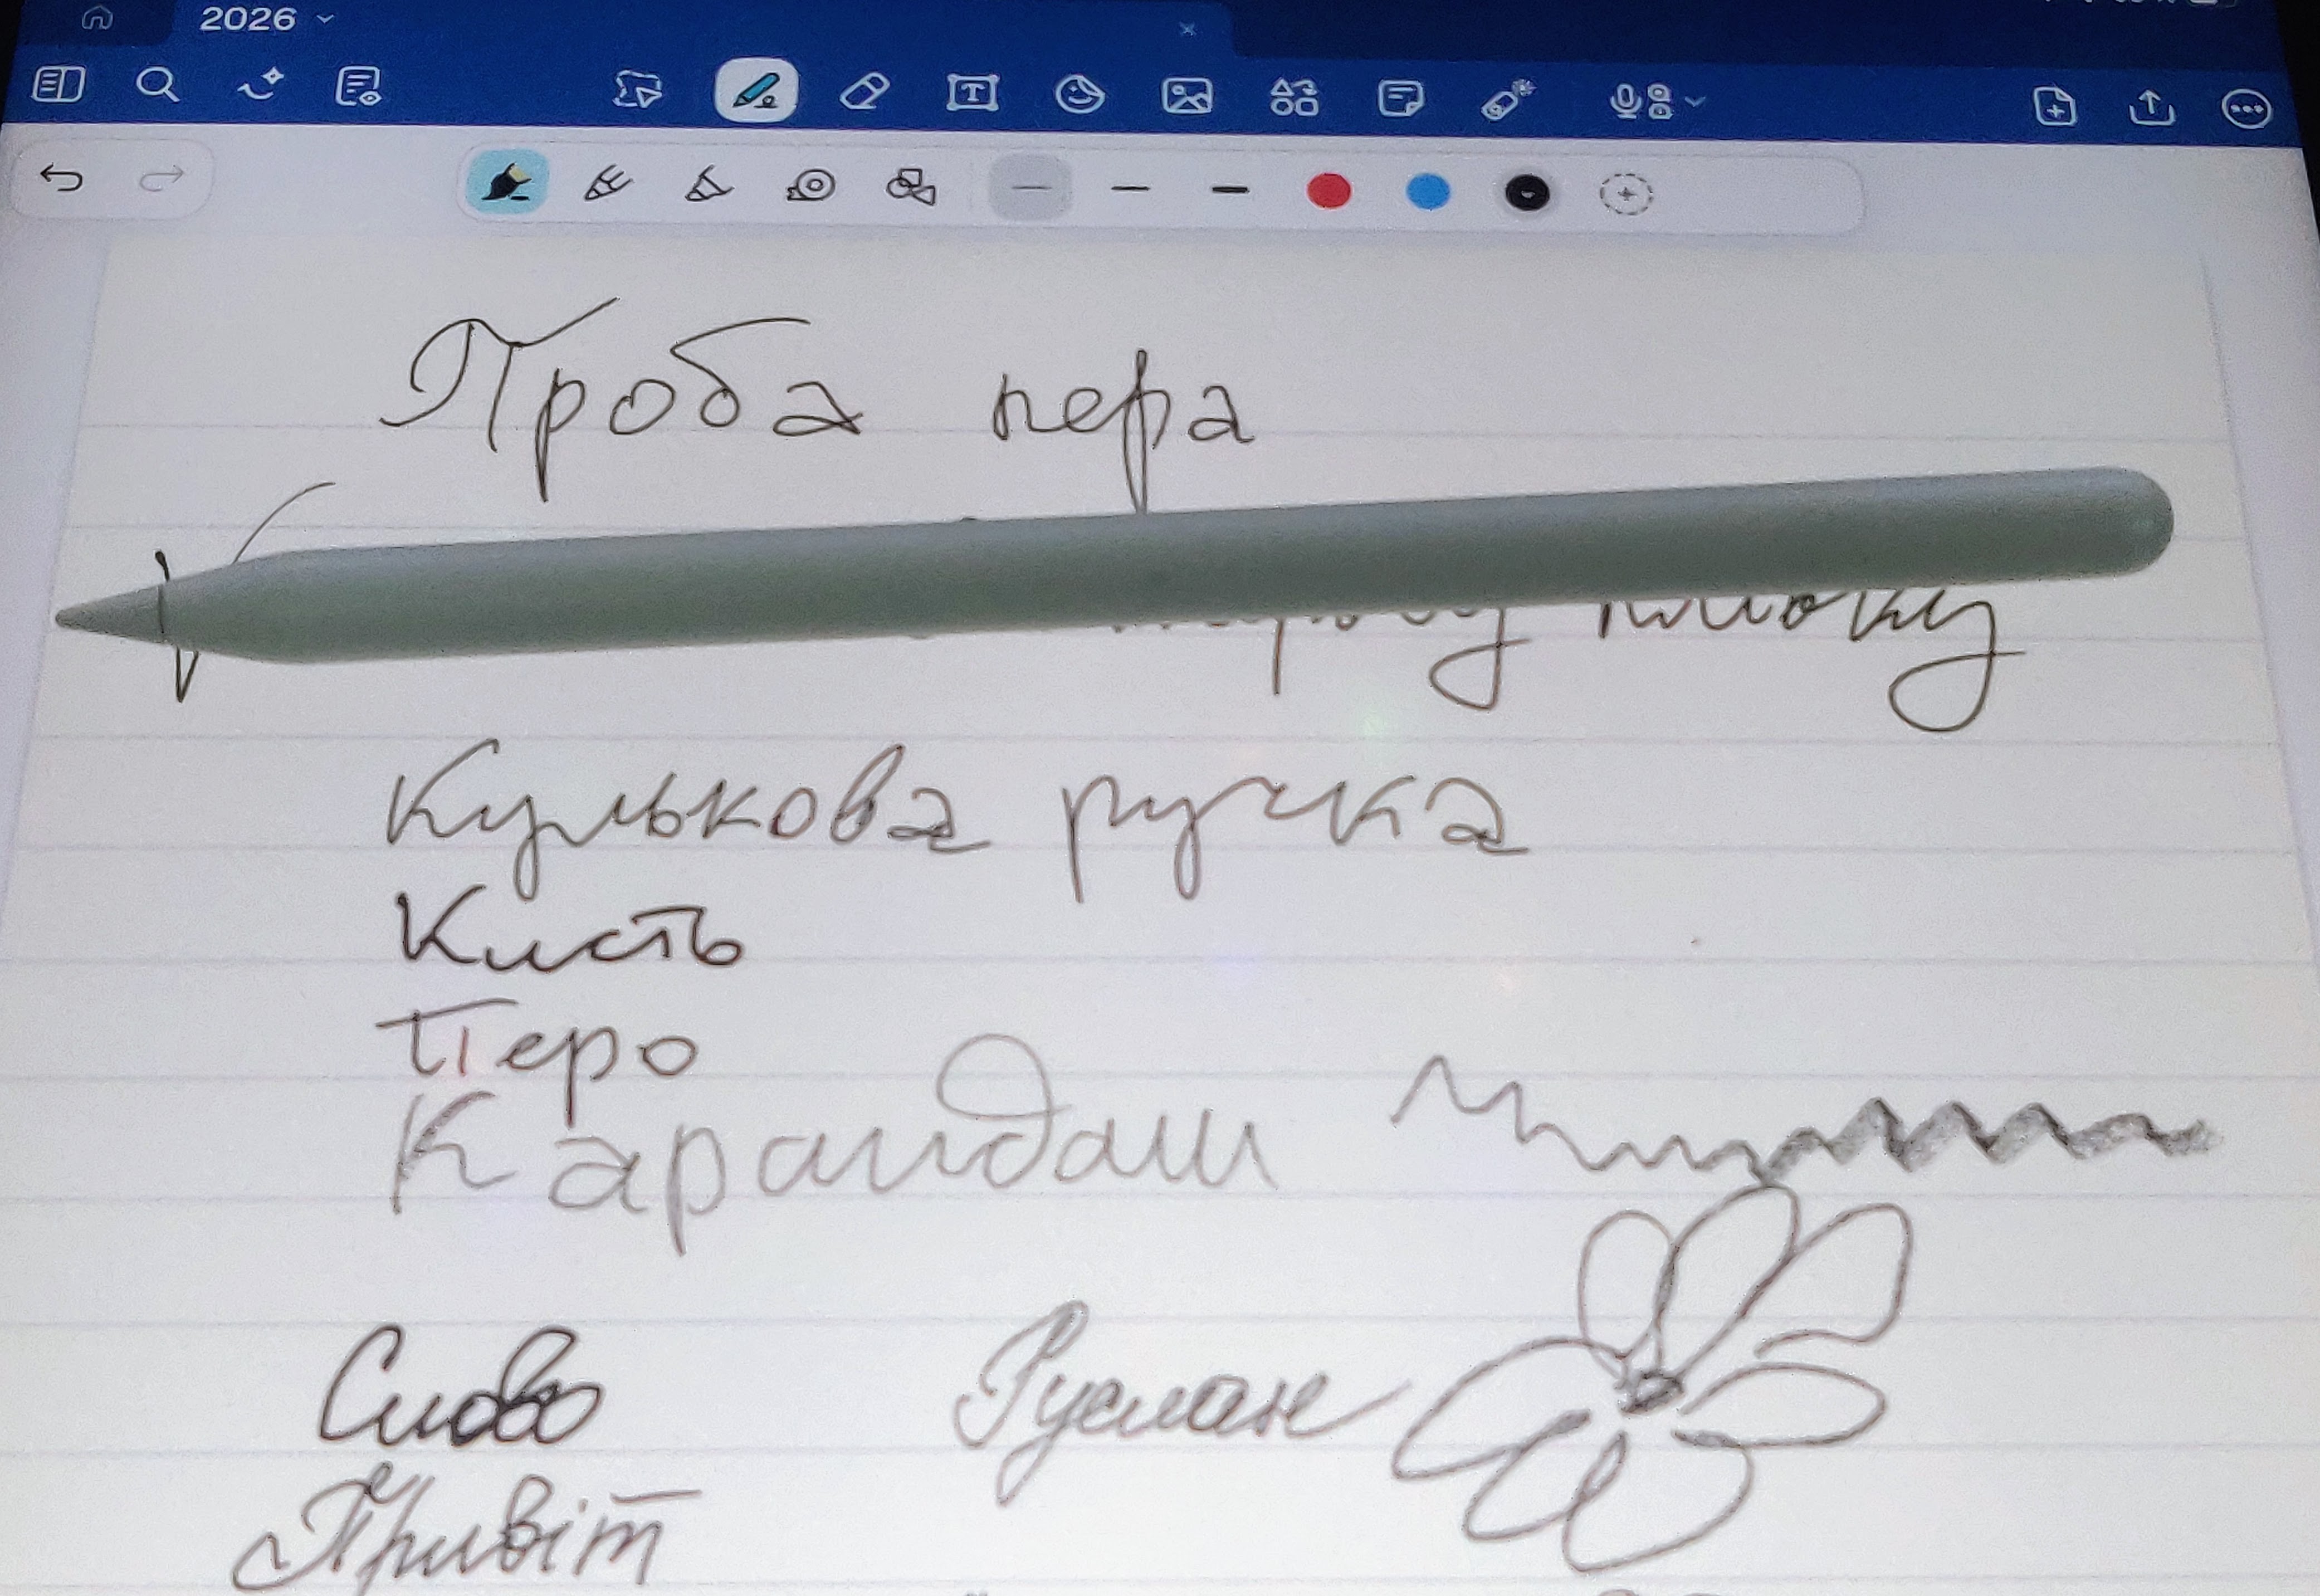 2026
Проба пера
Кулькова ручка
Кисть
Перо
Карандаш
Слово Руслан
Привіт